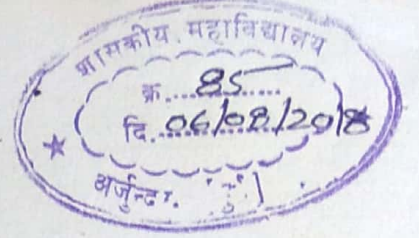 शासकीय महाविद्यालय
क्र. 85
दि. 06/08/2018
अर्जुन्दा